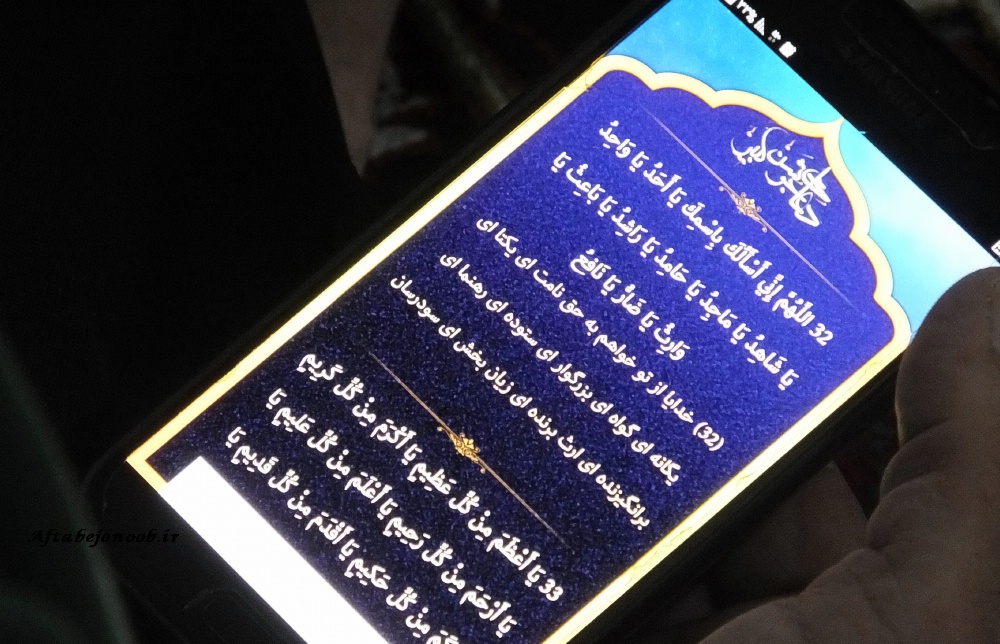 32 اللَّهُمَّ إِنِّي أَسْأَلُكَ بِاسْمِكَ يَا أَحَدُ يَا وَاحِدُ
يَا شَاهِدُ يَا مَاجِدُ يَا حَامِدُ يَا رَاشِدُ يَا بَاعِثُ يَا
وَارِثُ يَا ضَارُّ يَا نَافِعُ
(32) خدایا از تو خواهم به حق نامت ای یکتا ای
یگانه ای گواه ای بزرگوار ای ستوده ای رهنما ای
برانگیزنده ای ارث برنده ای زیان بخش ای سودرسان
33 يَا أَعْظَمَ مِنْ كُلِّ عَظِيمٍ يَا أَكْرَمَ مِنْ كُلِّ كَرِيمٍ
يَا أَرْحَمَ مِنْ كُلِّ رَحِيمٍ يَا أَعْلَمَ مِنْ كُلِّ عَلِيمٍ يَا
مِنْ كُلِّ حَكِيمٍ يَا أَقْدَمَ مِنْ كُلِّ قَدِيمٍ يَا
Aftabejonoob.ir